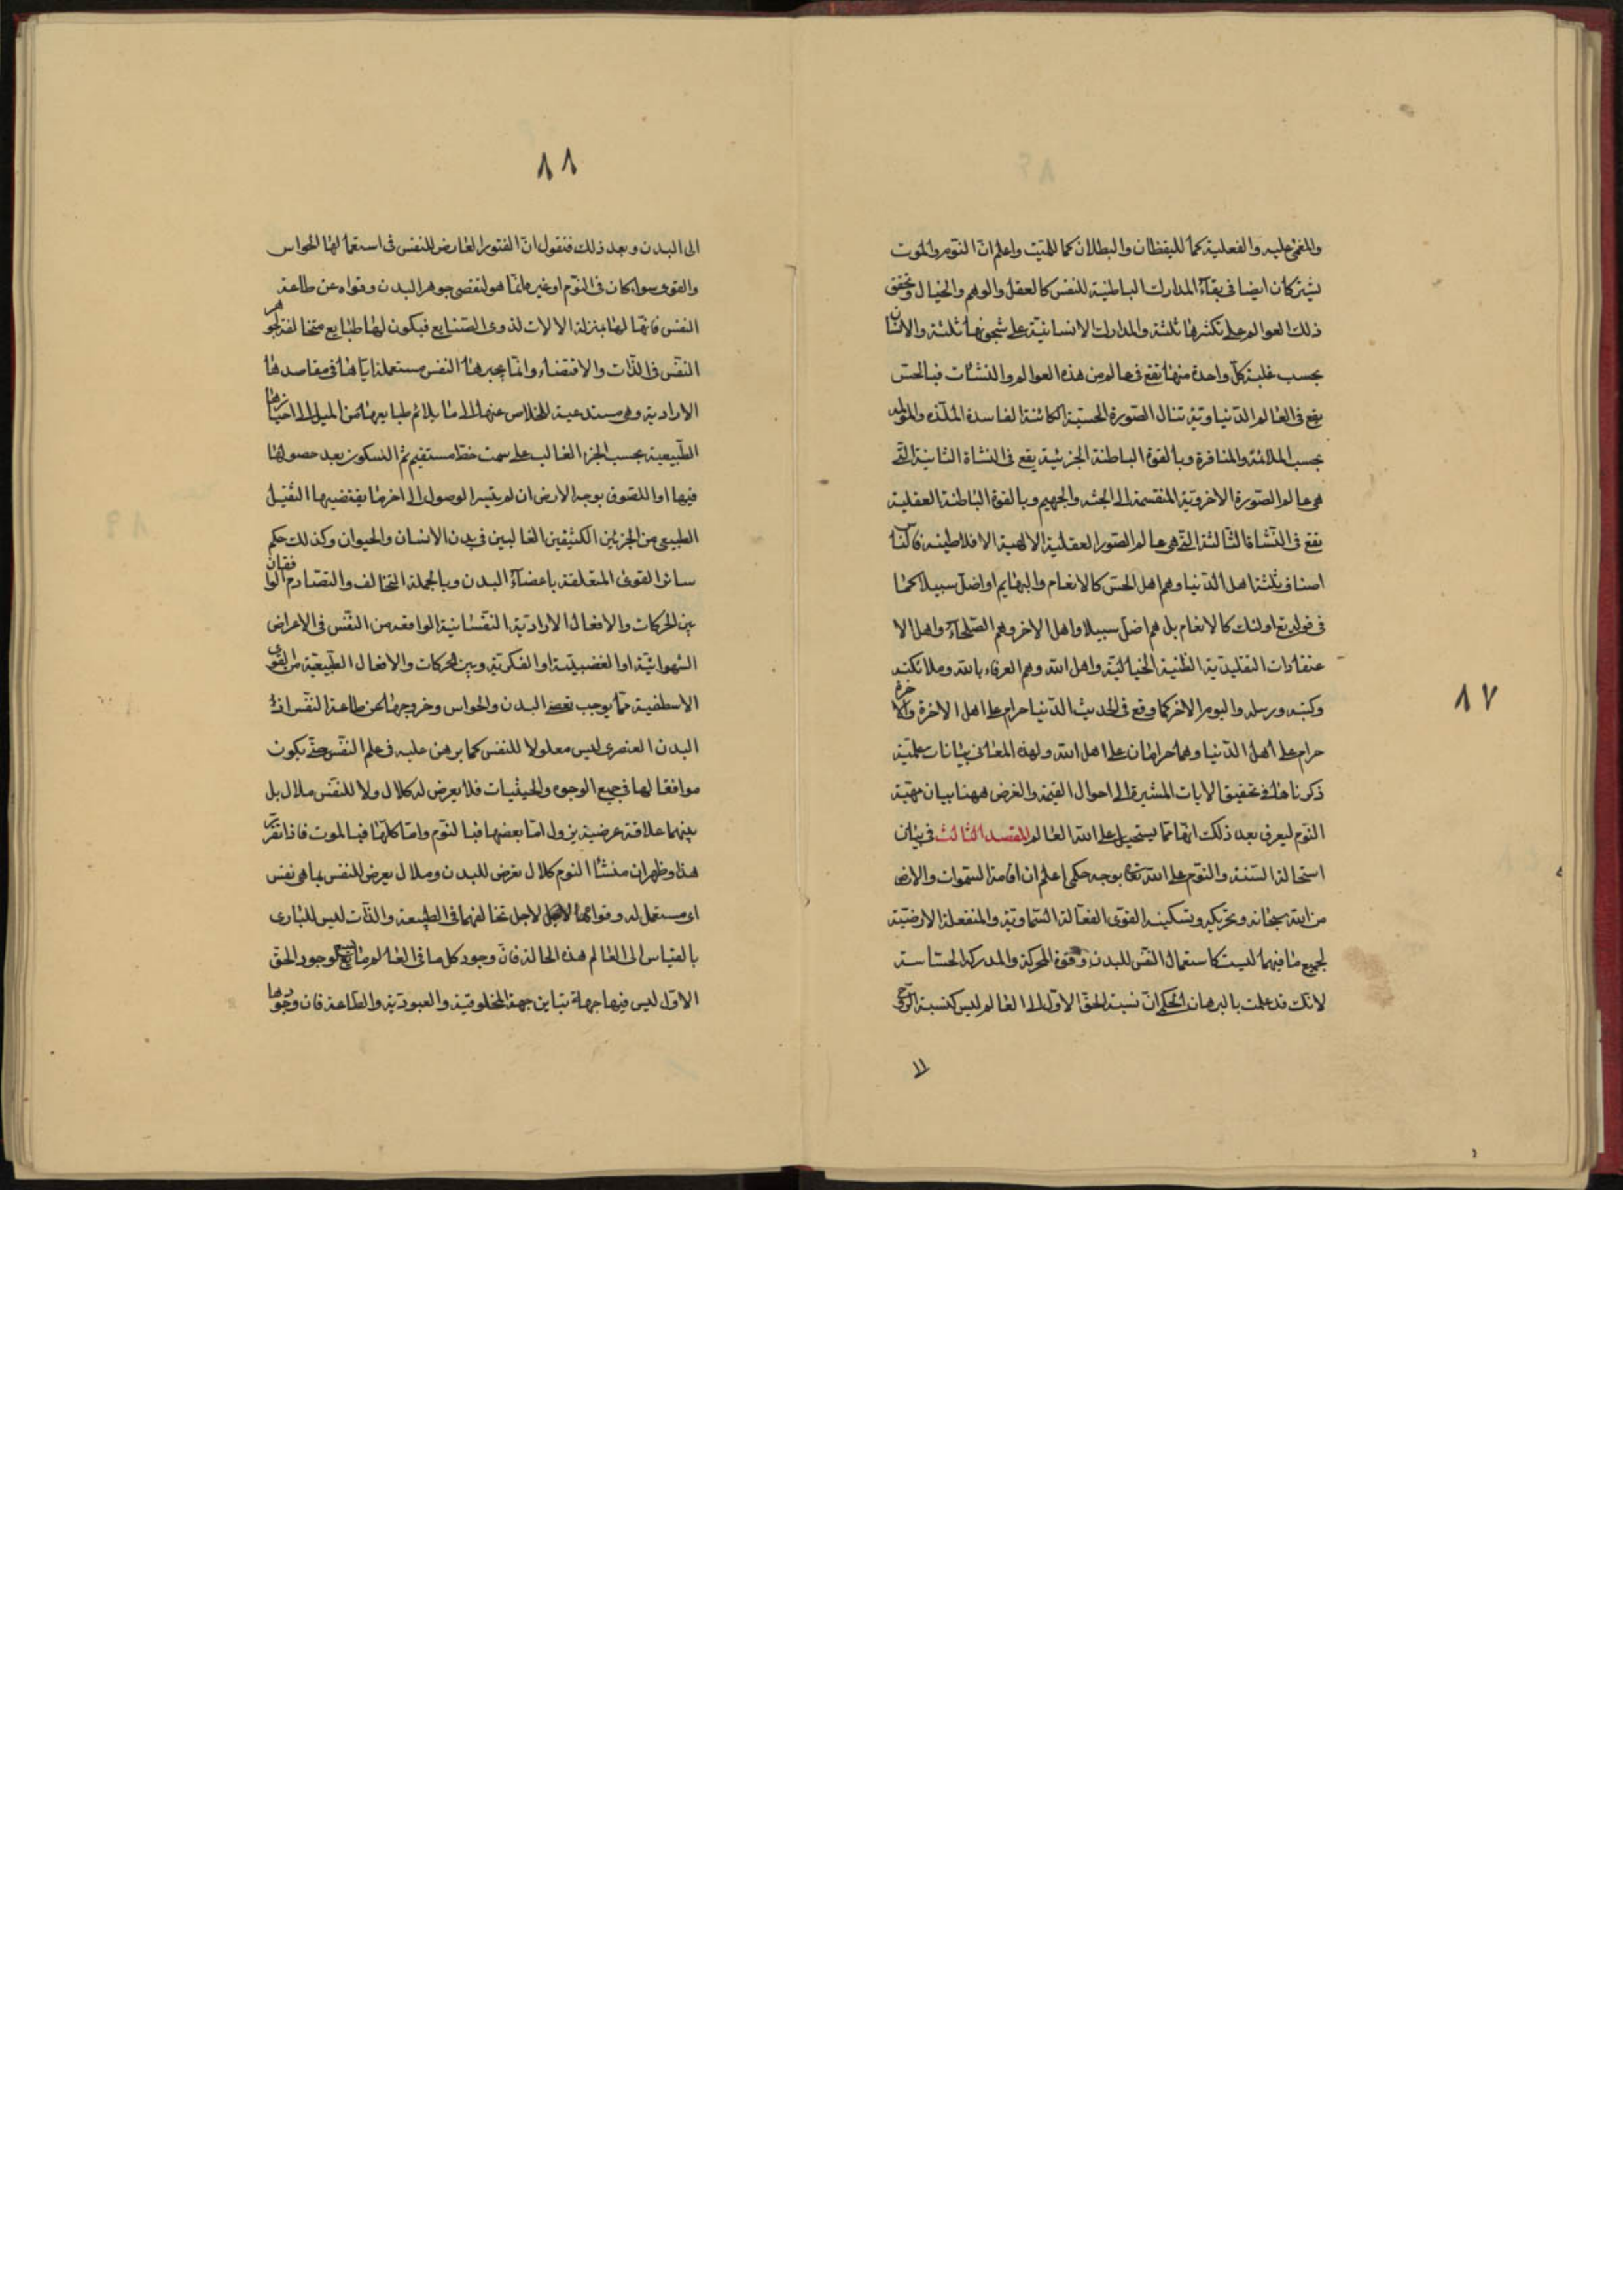 والمغمى عليه والفعلية كما لليقظان والبطلان كما للميت واعلم ان النوم والموت
يشتركان ايضا فى بقاء المدارك الباطنية للنفس كالعقل والوهم والخيال وتحقق
ذلك العوالم على تكثرها ثلثة والمدارك الانسانية على شجونها ثلثة والانسان
بحسب غلبة كل واحدة منها تقع فى عالم من هذه العوالم والنشات فبالحس
يقع فى العالم الدنياوية تنال الصورة الحسية الكائنة الفاسدة الملذه والمؤلمه
بحسب الملائمة والمنافرة وبالقوة الباطنة الجزئية يقع فى النشاة الثانية التى
هى عالم الصورة الاخروية المنقسمة الى الجنه والجهيم وبالقوة الباطنة العقلية
تقع فى النشاة الثالثة التى هى عالم الصور العقلية الالهية الافلاطينه فالناس
اصناف ثلثة اهل الدنيا وهم اهل الحس كالانعام والبهايم او اضل سبيلا كما
فى قوله تع اولئك كالانعام بل هم اضل سبيلا واهل الاخر وهم الصلحاء واهل الا
عتقادات التقليدية الظنية الخيالية واهل الله وهم العرفاء بالله وملائكته
وكتبه ورسله واليوم الاخر كما وقع فى الحديث الدنيا حرام على اهل الاخرة والاخرة
حرام على اهل الدنيا وهما حرامان على اهل الله ولهذه المعانى بيانات علمية
ذكرناها فى تحقيق الايات المشيرة الى احوال القيمة والغرض ههنا بيان مهية
النوم ليعرف بعد ذلك انها مما يستحيل على الله العالم المقصد الثالث فى بيان
استحالة السنة والنوم على الله تعالى بوجه حكمى اعلم ان اقامة السموات والارض
من الله سبحانه وتحريكه وتسكينه القوى الفعالة السماوية والمنفعلة الارضية
لجميع ما فيهما ليست كاستعمال النفس للبدن وقوة المحركة والمدركة الحساسة
لانك قد علمت بالبرهان الحكمى ان نسبة الحق الاول الى العالم ليس كنسبة الروح
٨٧
٨٨
الى البدن وبعد ذلك فنقول ان الفتور العارض للنفس فى استعمالها الحواس
والقوى سواء كان فى النوم او غيره انما هو لتقصى جوهر البدن وقواه عن طاعة
النفس فانها لها بمنزلة الالات لذوى الصنايع فيكون لها طبايع متخالفة لجوهر
النفس فى الذات والاقتضاء وانما يجبرها النفس مستعملة اياها فى مقاصدها
الارادية وهى مستدعية للخلاص عنها الى ما يلائم طبايعها من الميل الى احيازها
الطبيعية بحسب الجزء الغالب على سمت خط مستقيم ثم السكون بعد حصولها
فيها او اللصوق بوجه الارض ان لم يتيسر الوصول الى اخر ما يقتضيها الثقيل
الطبيعى من الجزئين الكثيفين الغالبين فى بدن الانسان والحيوان وكذلك حكم
سائر القوى المتعلقة باعضاء البدن وبالجملة التخالف والتصادم الواقعان
بين الحركات والافعال الارادية النفسانية الواقعه من النفس فى الاعراض
الشهوانية او الغضبية او الفكرية وبين الحركات والافعال الطبيعية من القوى
الاسطقسية مما يوجب البدن والحواس وخروجها عن طاعة النفس اذ
البدن العنصرى ليس معلولا للنفس كما برهن عليه فى علم النفس حتى يكون
موافقا لها فى جميع الوجوه والحيثيات فلا يعرض له كلال ولا للنفس ملال بل
بينهما علاقة عرضية يزول اما بعضها فبالنوم واما كلها فبالموت فاذا تقرر
هذا وظهر ان منشا النوم كلال تعرض للبدن وملال يعرض للنفس بما هى نفس
اى مستعمل له وقواها لاجل تخالفهما فى الطبيعة والذات ليس للبارى
بالقياس الى العالم هذه الحالة فان وجود كل ما فى العالم لوجود الحق
الاول ليس فيها جهة تباين جهة المخلوقية والعبودية والطاعة فان وجودها